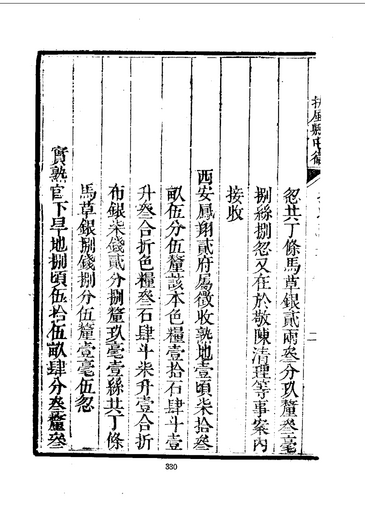 扶風縣
忽共丁條馬草銀貳兩叁分玖釐叁毫
捌絲捌忽又在於敬陳清理等事案內
接收
西安鳳翔貳府屬徵收熟地壹頃柒拾叁
畝伍分伍釐該本色糧壹拾石肆斗壹
升叁合折色糧叁石肆斗柒升壹合折
布銀柒錢貳分捌釐玖毫壹絲共丁條
馬草銀捌錢捌分伍釐壹毫伍忽
實熟官下旱地捌頃伍拾伍畝肆分叁釐叁
330